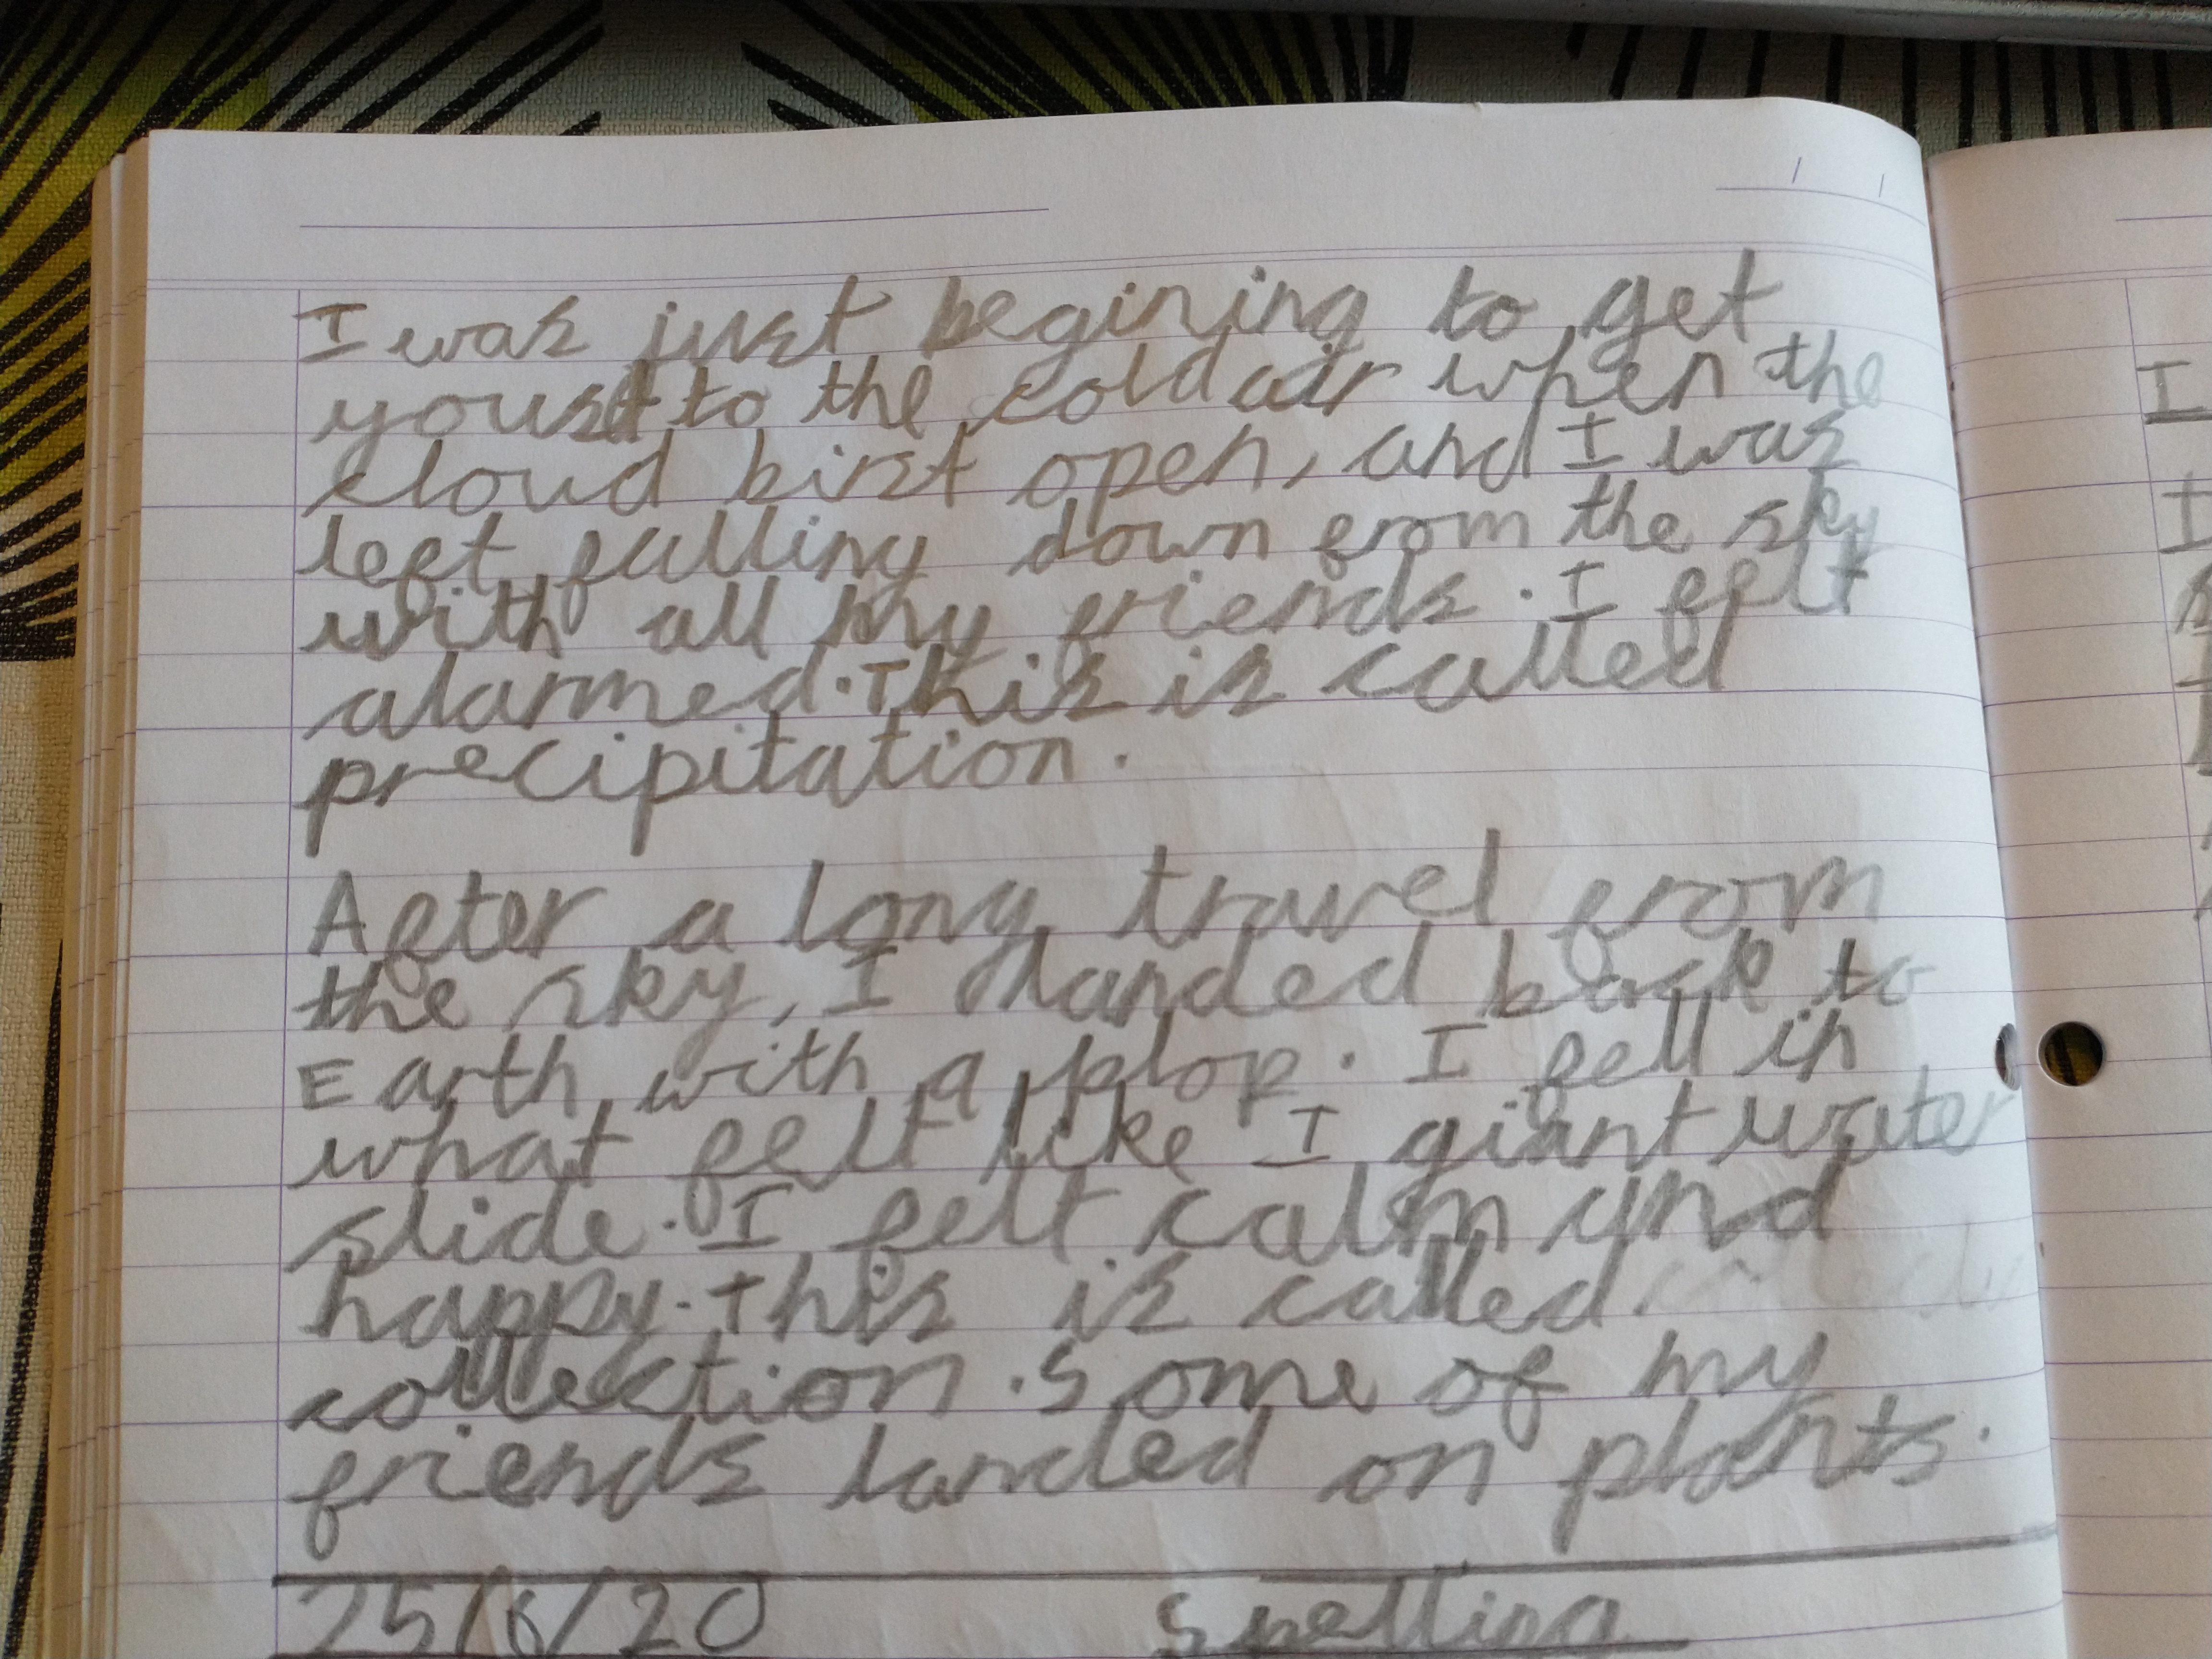 I was just begining to get
youst to the cold air when the
cloud birst open, and I was
left falling down from the sky
with all my friends. I felt
alarmed. This is called
precipitation.
After a long travel from
the sky, I landed back to
Earth with a plop. I fell in
what felt like I giant water
slide. I felt calm and
happy. This is called
collection. Some of my
friends landed on plants.
25/6/20 Spelling
I
I